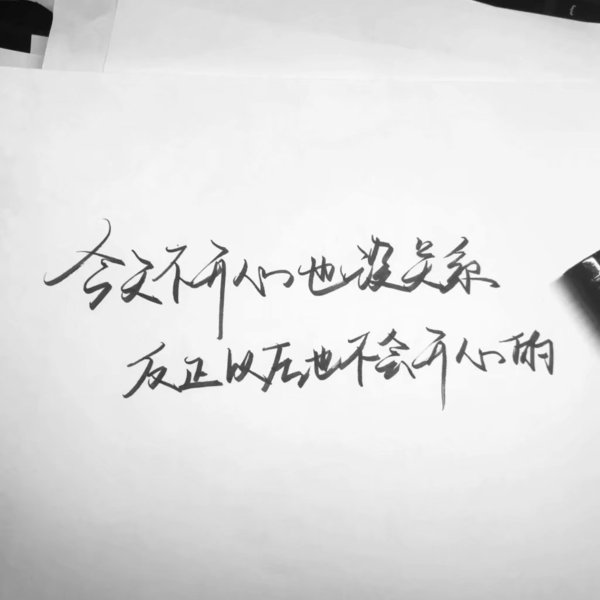 今天不开心也没关系
反正以后也不会开心的